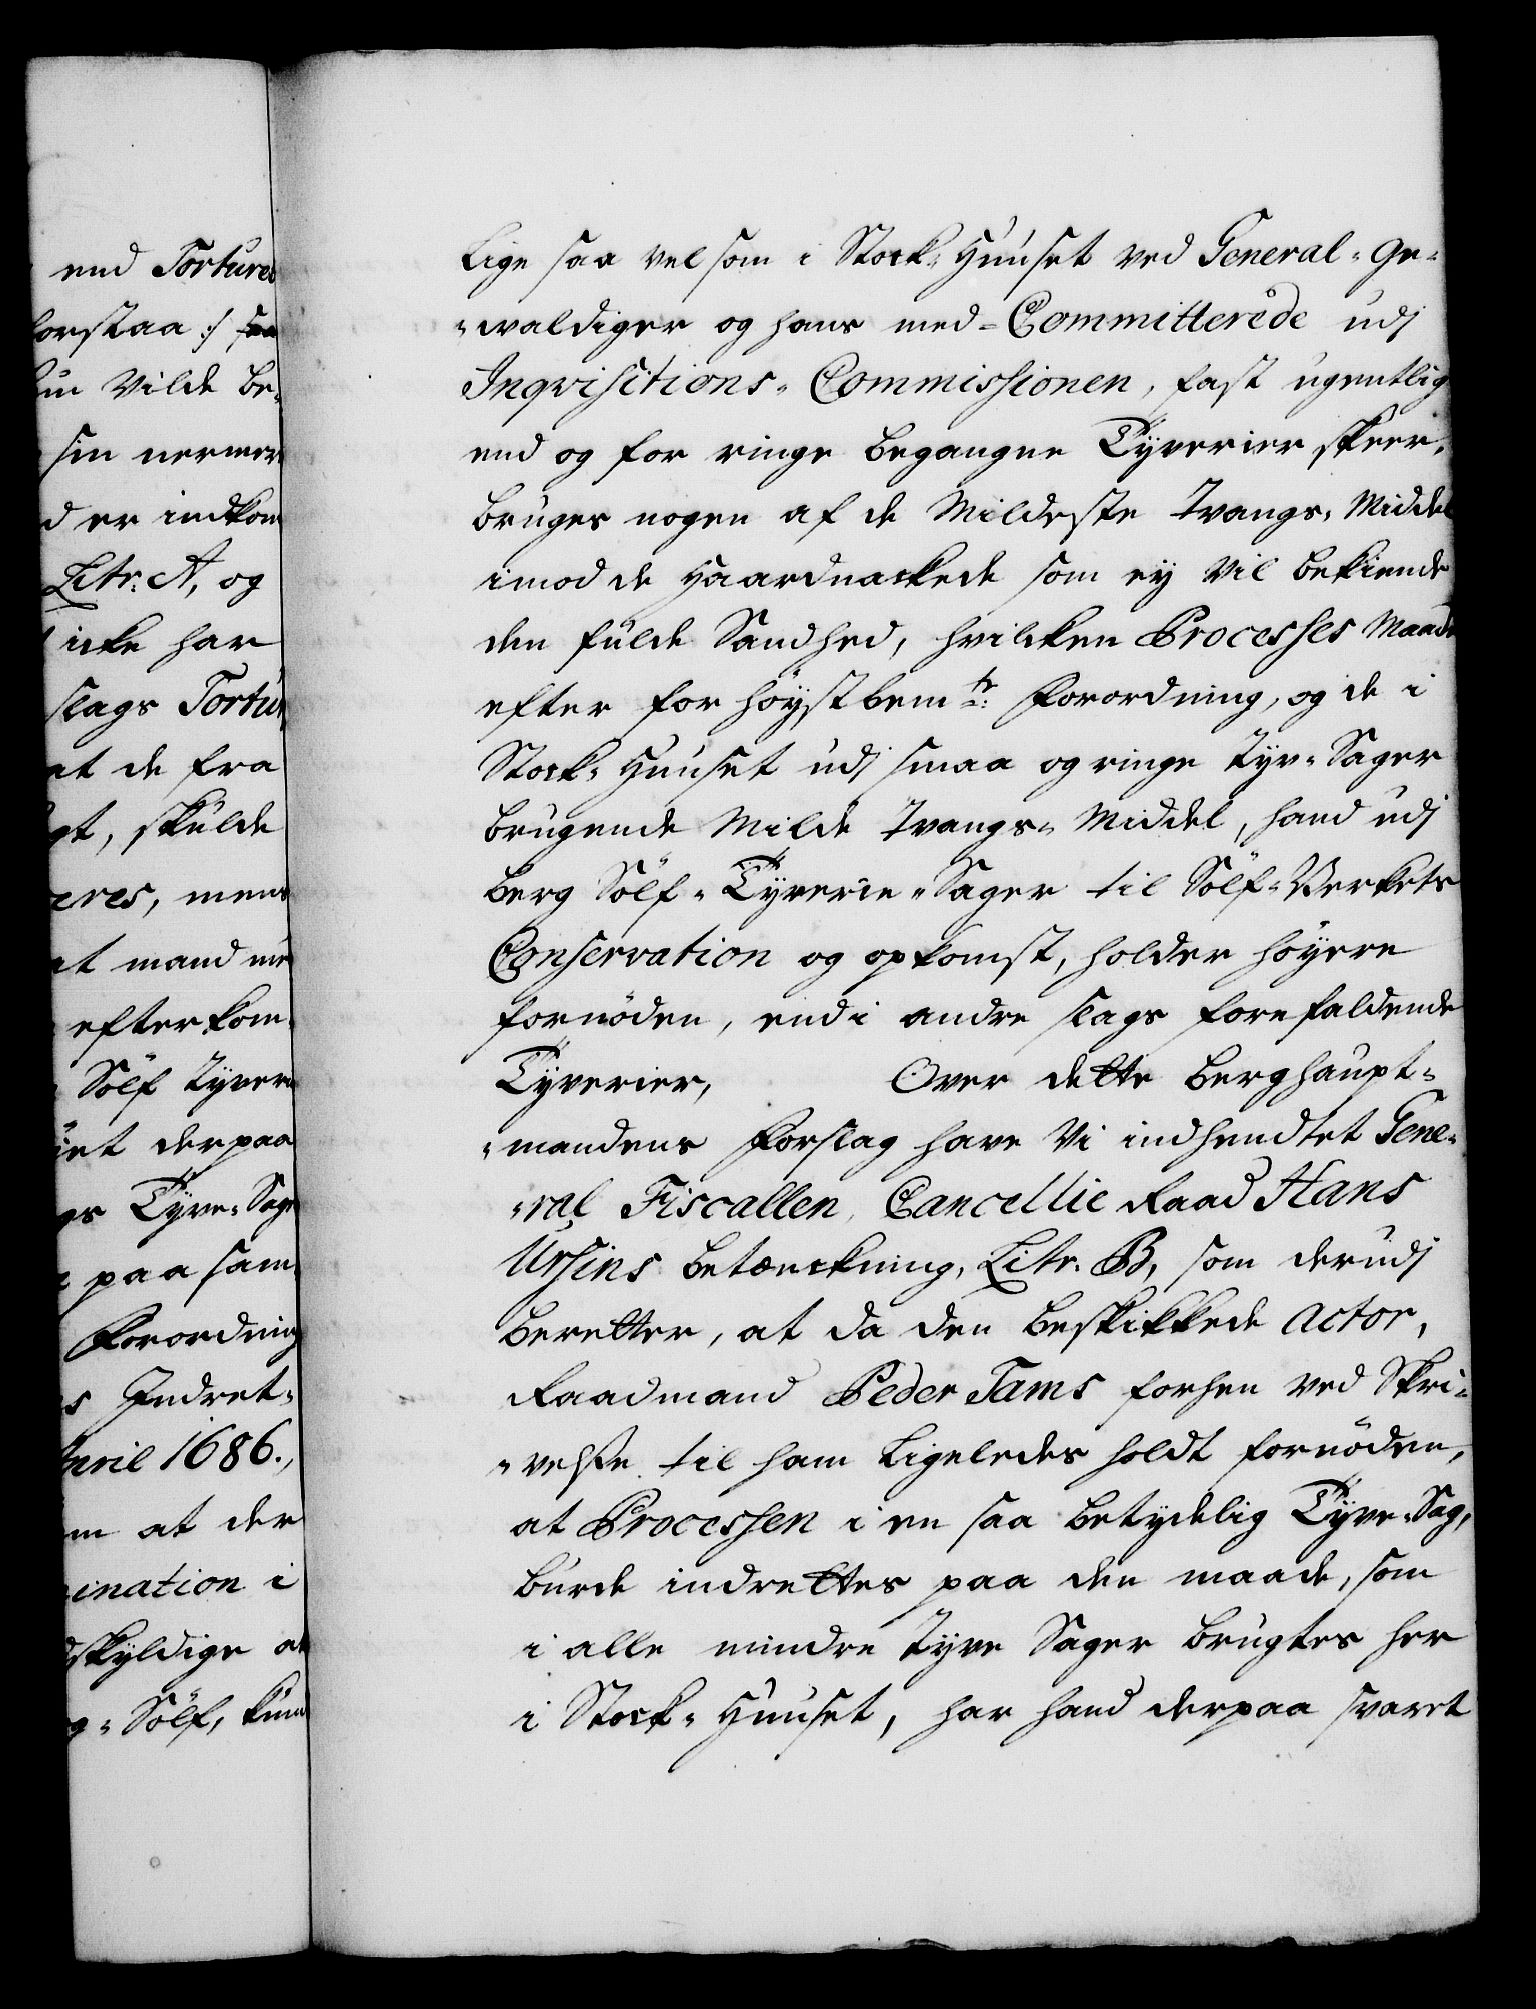 end Torturen
forstaa :/ saa
hun Vilde be-
sin nermere
d er indkom
Litr: A, og
icke har
slags Tortur,
at de fra
gt, skulde
eres, mens
at mand
efterkom-
Sölf Tyver
iet derpaa
gs Tyve-Sag
paa sam-
Forordning
s Indret-
April 1686.,
m at der
ination i
dskyldige at
g-Sölf, kund
Lige saa vel som i Stock-Huuset ved General-Ge-
-waldiger og hans med-Committerede udj
Inqvisitions-Commissionen, fast ugentlig
end og for ringe begangne Tyverier skeer,
bruges nogen af de Mildeste Tvangs-Middel
imod de Haardnackede som ey vil bekiende
den fulde Sandhed, hvilcken Processes Maade
efter for höystbemte: Forordning, og de i
Stock-Huuset udj smaa og ringe Tyv-Sager
brugende Milde Tvangs-Middel, hand udj
berg Sölf-Tyverie-Sager til Sölf-Verkets
Conservation og opkomst, holder höyere
fornöden, end i andre slags forefaldende
Tyverier, Over dette Berghaupt-
-mandens Forslag have Vi indhendtet Gene-
-ral Fiscallen, Cancellie Raad Hans
Ursins betænckning, Litr. B, som derudj
beretter, at da den beskikkede Actor,
Raadmand Peder Tams forhen ved Skri-
-velse til ham Ligeledes holdt fornöden,
at Processen i en saa betydelig Tyve-Sag,
burde indrettes paa den maade, som
i alle mindre Tyve Sager brugtes her
i Stock-Huuset, har hand derpaa svaret